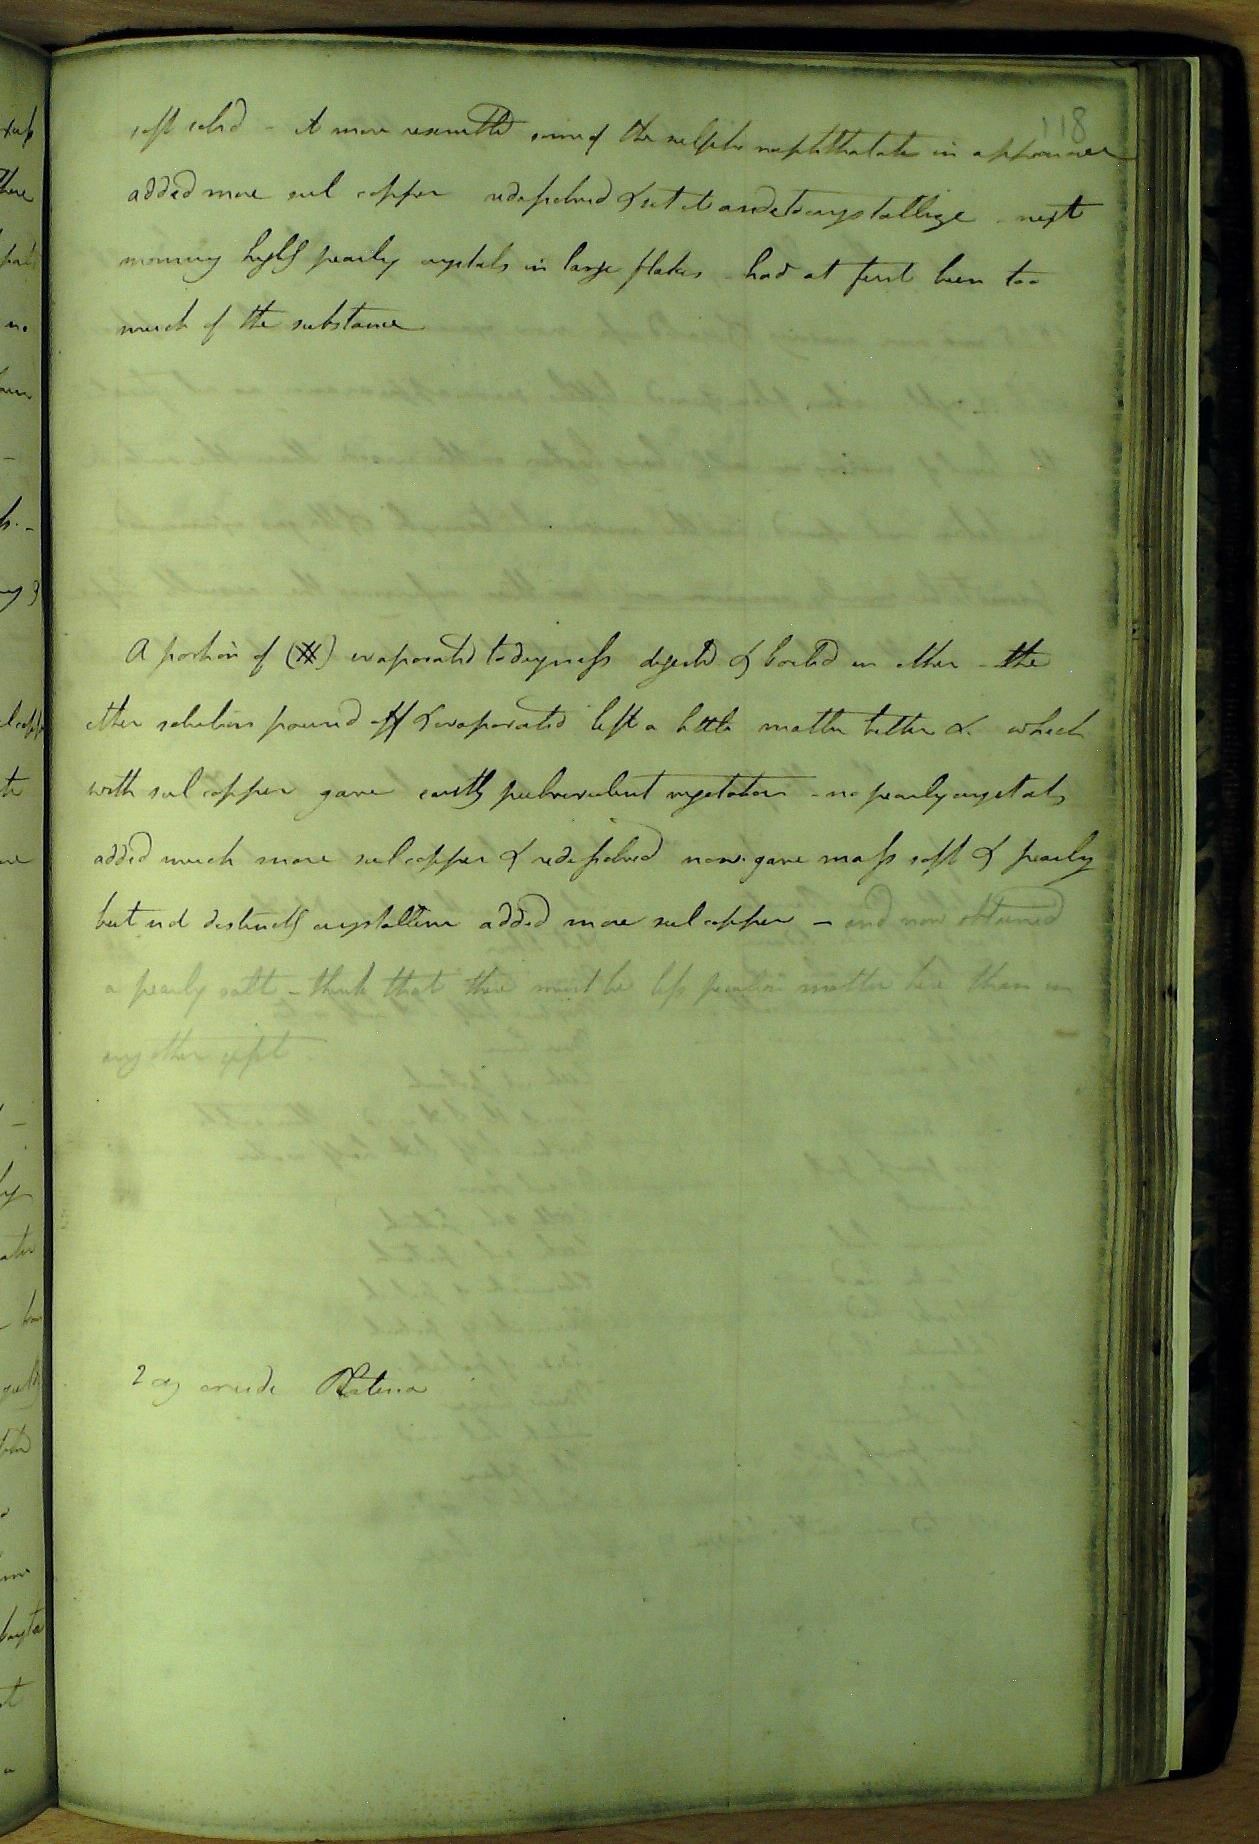 118
soft solid - it more resembled some of the sulpho naphthalates in appearance
added more sul copper redissolved & set it aside to crystallize - next
morning highly pearly crystals in large flakes - had at first been too
much of the substance
A portion of (#) evaporated to dryness digested & boiled in ether - the
ether solution poured off & evaporated left a little matter bitter &c which
with sul copper gave earthy pulverulent vegetation - no pearly crystals
added much more sul copper & redissolved now gave mass soft & pearly
but not distinctly crystalline added more sul copper - and now obtained
a pearly salt - think that there must be less peculiar matter here than in
any other expt.
2 oz crude Platina